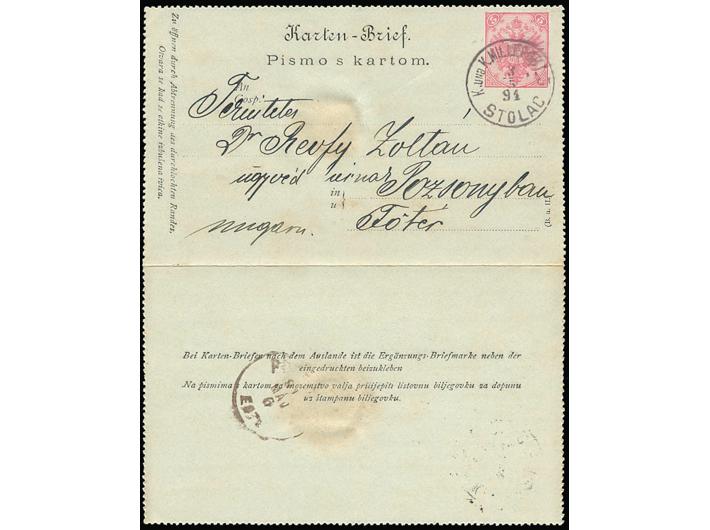 Karten-Brief.
Pismo s kartom.
An
Gosp.
Dr Reofy Zoltán
ügyvéd úrnak Pozsonyban
in
u
Főtér
Zu öffnen durch Abtrennung des durchlochten Randes.
Otvara se kad se otkine izbušena ivica.
5
K. UND K. MILIT. POST
94
STOLAC
(D. u. I.)
Bei Karten-Briefen nach dem Auslande ist die Ergänzungs-Briefmarke neben der
eingedruckten beizukleben
Na pismima s kartom za inozemstvo valja prilijepiti listovnu biljegovku za dopunu
uz štampanu biljegovku.